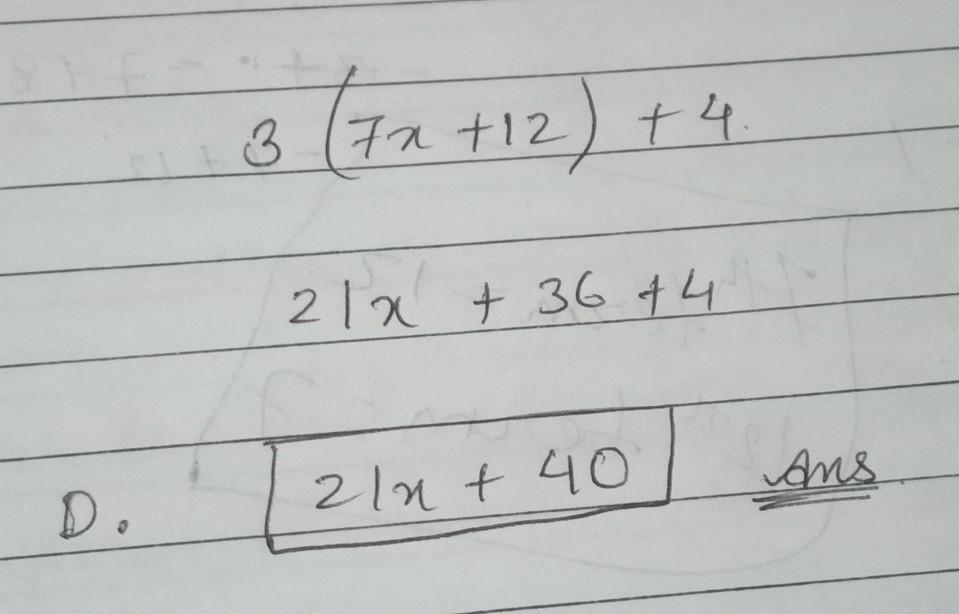 3 (7x +12) + 4.
21x + 36 + 4
D. 21x + 40 Ans